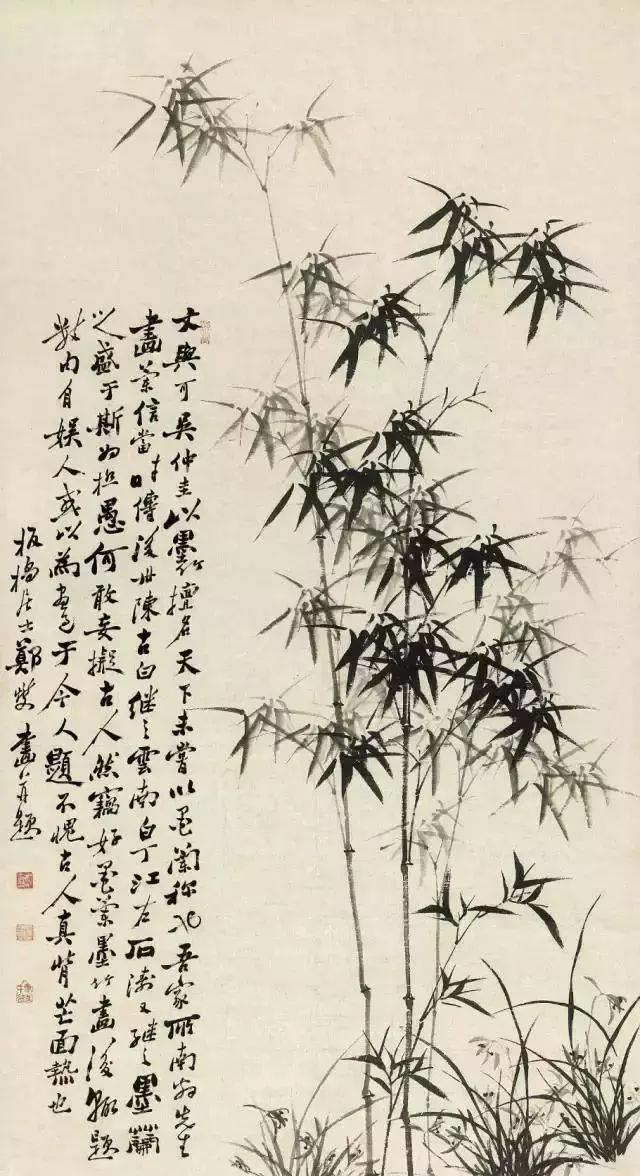 文與可吳仲圭以墨竹擅名天下未嘗以墨蘭称也吾家所南翁先生
畫蘭信當时傳後世陳古白继之雲南白丁江左石濤又继之墨蘭
之盛于斯为极愚何敢妄擬古人然竊好墨蘭墨竹畫後輒題
内自娛人或以為于今人顯不愧古人真背芒面熱也
板橋居士鄭燮畫并題